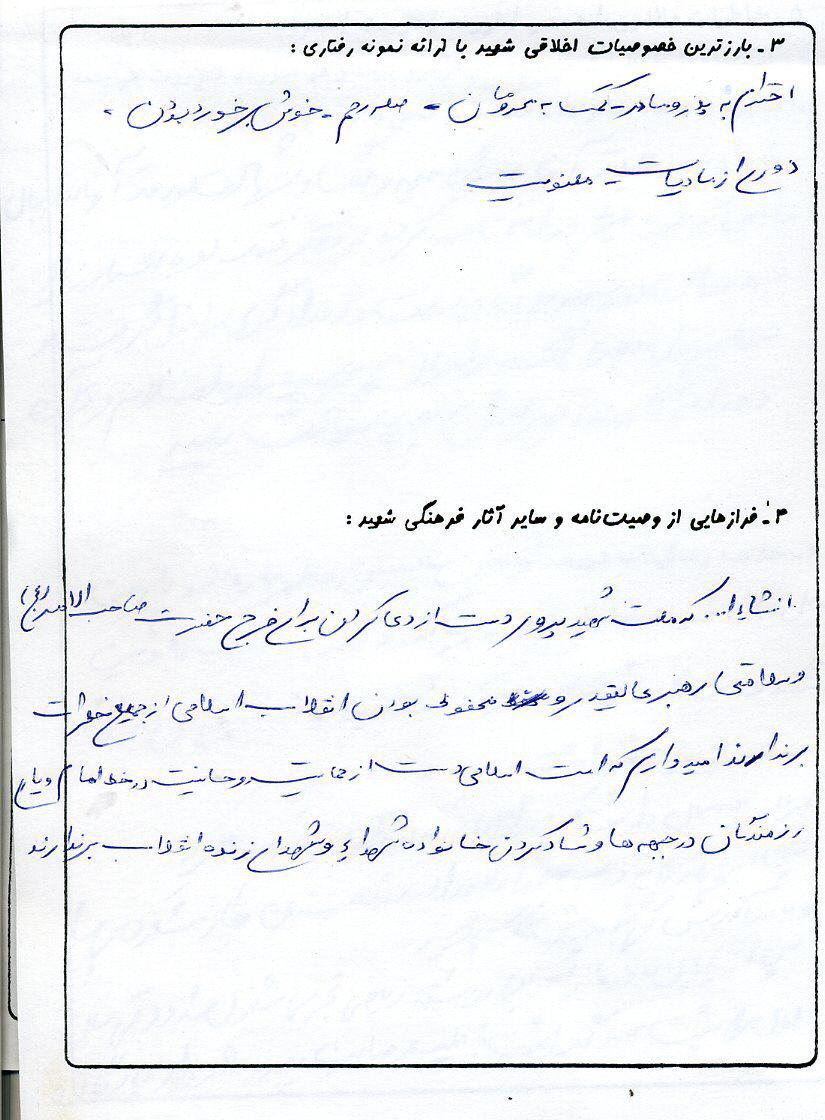 ۳- بارزترین خصوصیات اخلاقی شهید با ارائه نمونه رفتاری :
احترام به پدر و مادر - کمک به محرومان - صله رحم - خوش برخورد بودن -
دوری از مادیات - معنویت
۴- فرازهایی از وصیت‌نامه و سایر آثار فرهنگی شهید :
انشاءا... که ملت شهید پرور دست از دعا کردن برای فرج حضرت صاحب الامر (عج)
و سلامتی رهبر عالیقدر و محفوظ بودن انقلاب اسلامی از جمیع خطرات
برندارند امیدوارم که امت اسلامی دست از حمایت روحانیت در خط امام و یاری
رزمندگان در جبهه ها و شاد کردن خانواده شهداء و شهدای زنده انقلاب برندارند